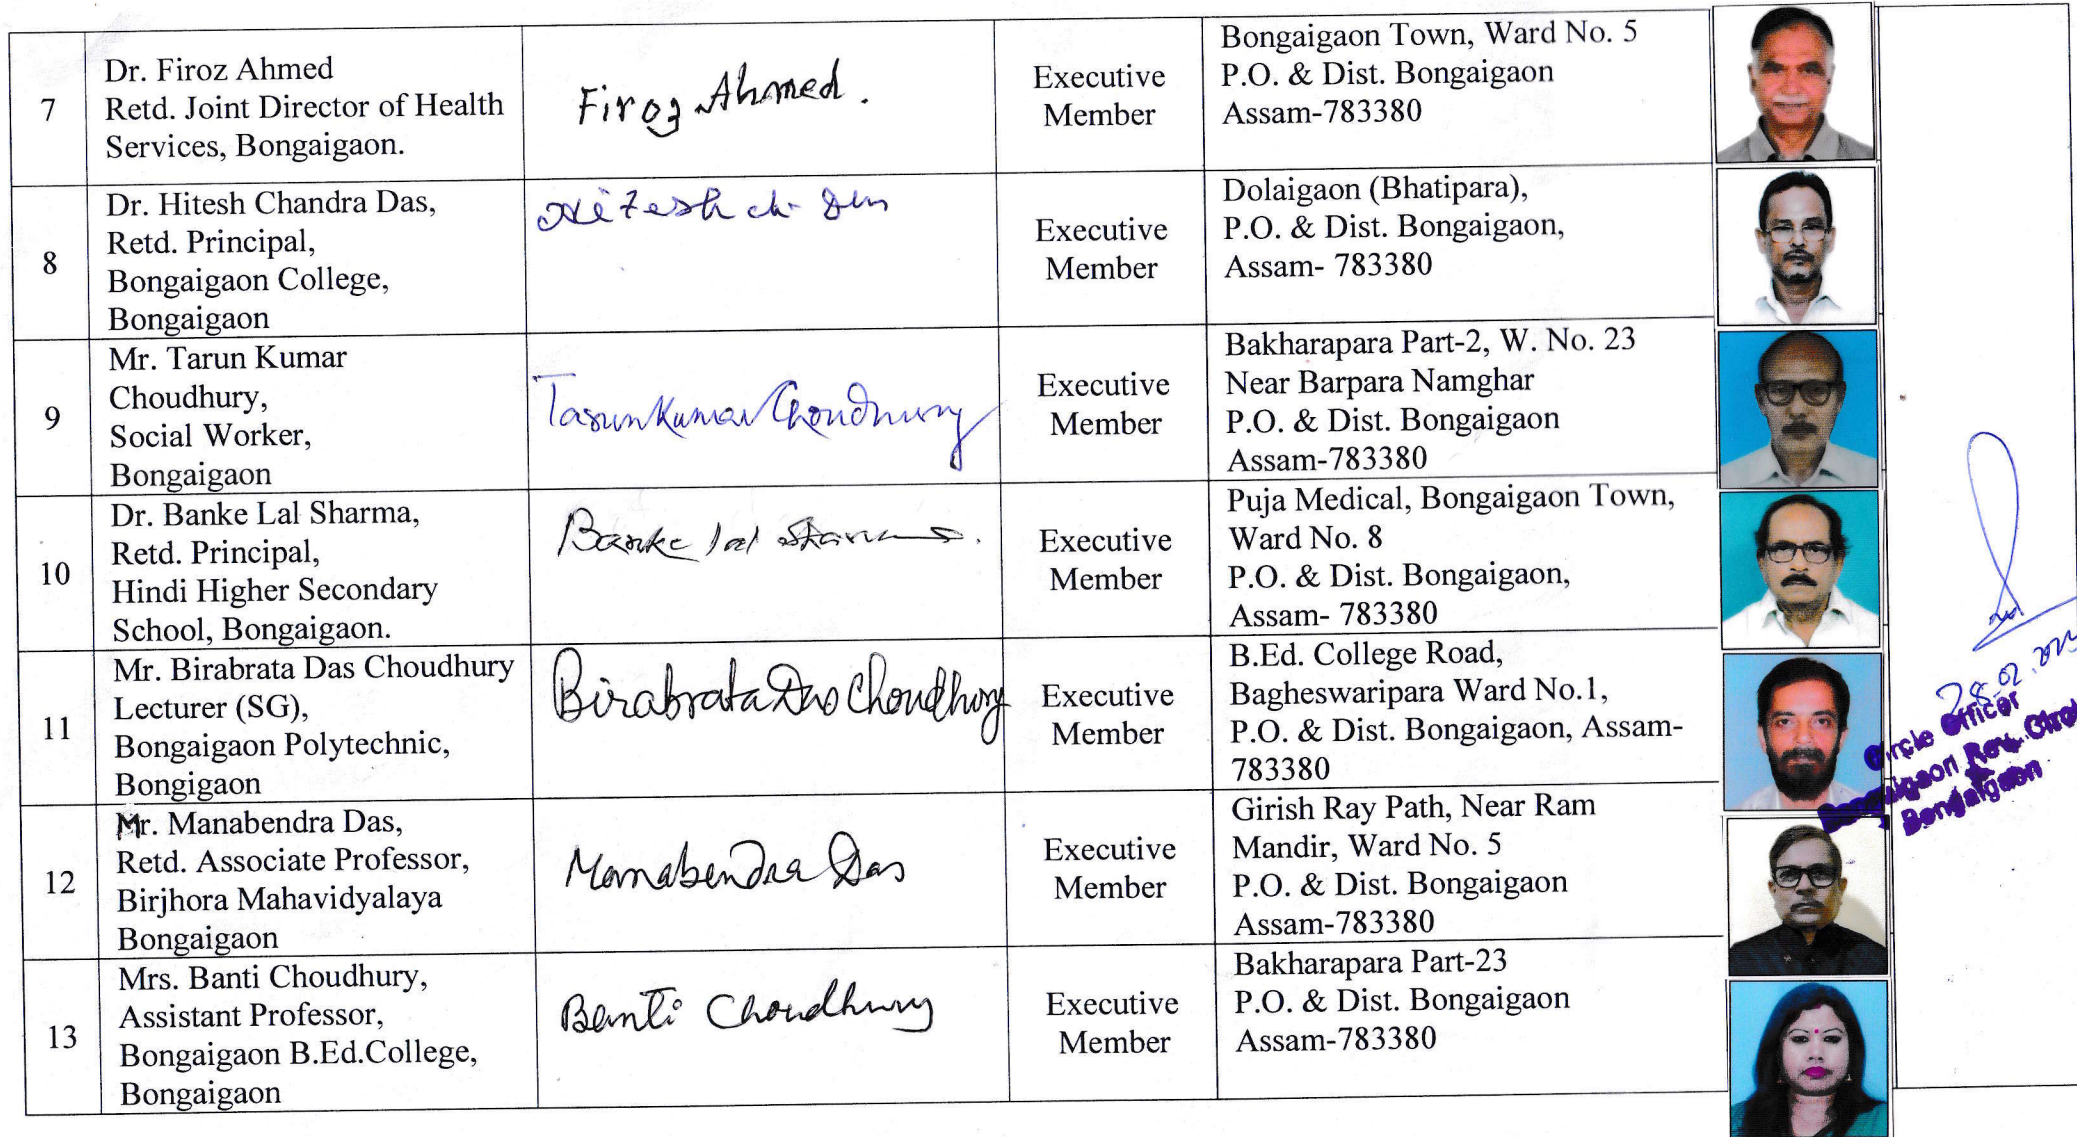 7
Dr. Firoz Ahmed
Retd. Joint Director of Health
Services, Bongaigaon.
Firoz Ahmed.
Executive
Member
Bongaigaon Town, Ward No. 5
P.O. & Dist. Bongaigaon
Assam-783380
8
Dr. Hitesh Chandra Das,
Retd. Principal,
Bongaigaon College,
Bongaigaon
Hitesh ch. Das
Executive
Member
Dolaigaon (Bhatipara),
P.O. & Dist. Bongaigaon,
Assam- 783380
9
Mr. Tarun Kumar
Choudhury,
Social Worker,
Bongaigaon
Tarun Kumar Choudhury
Executive
Member
Bakharapara Part-2, W. No. 23
Near Barpara Namghar
P.O. & Dist. Bongaigaon
Assam-783380
10
Dr. Banke Lal Sharma,
Retd. Principal,
Hindi Higher Secondary
School, Bongaigaon.
Banke lal Sharma.
Executive
Member
Puja Medical, Bongaigaon Town,
Ward No. 8
P.O. & Dist. Bongaigaon,
Assam- 783380
11
Mr. Birabrata Das Choudhury
Lecturer (SG),
Bongaigaon Polytechnic,
Bongigaon
Birabrata Das Choudhury
Executive
Member
B.Ed. College Road,
Bagheswaripara Ward No.1,
P.O. & Dist. Bongaigaon, Assam-
783380
12
Mr. Manabendra Das,
Retd. Associate Professor,
Birjhora Mahavidyalaya
Bongaigaon
Manabendra Das
Executive
Member
Girish Ray Path, Near Ram
Mandir, Ward No. 5
P.O. & Dist. Bongaigaon
Assam-783380
13
Mrs. Banti Choudhury,
Assistant Professor,
Bongaigaon B.Ed.College,
Bongaigaon
Banti Choudhury
Executive
Member
Bakharapara Part-23
P.O. & Dist. Bongaigaon
Assam-783380
28.02.
Circle Officer
Bongaigaon Rev. Circle
Bongaigaon